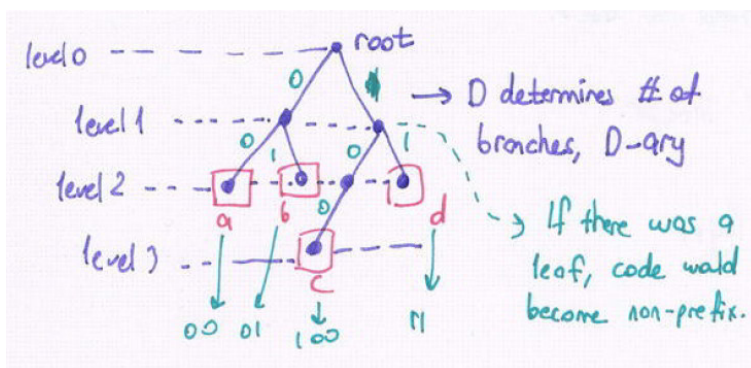 level 0 root
0 1
→ D determines # of
branches, D-ary
level 1
0 1 0 1
level 2
a b 0 d
If there was a
leaf, code would
become non-prefix.
level 3
c
00 01 100 11